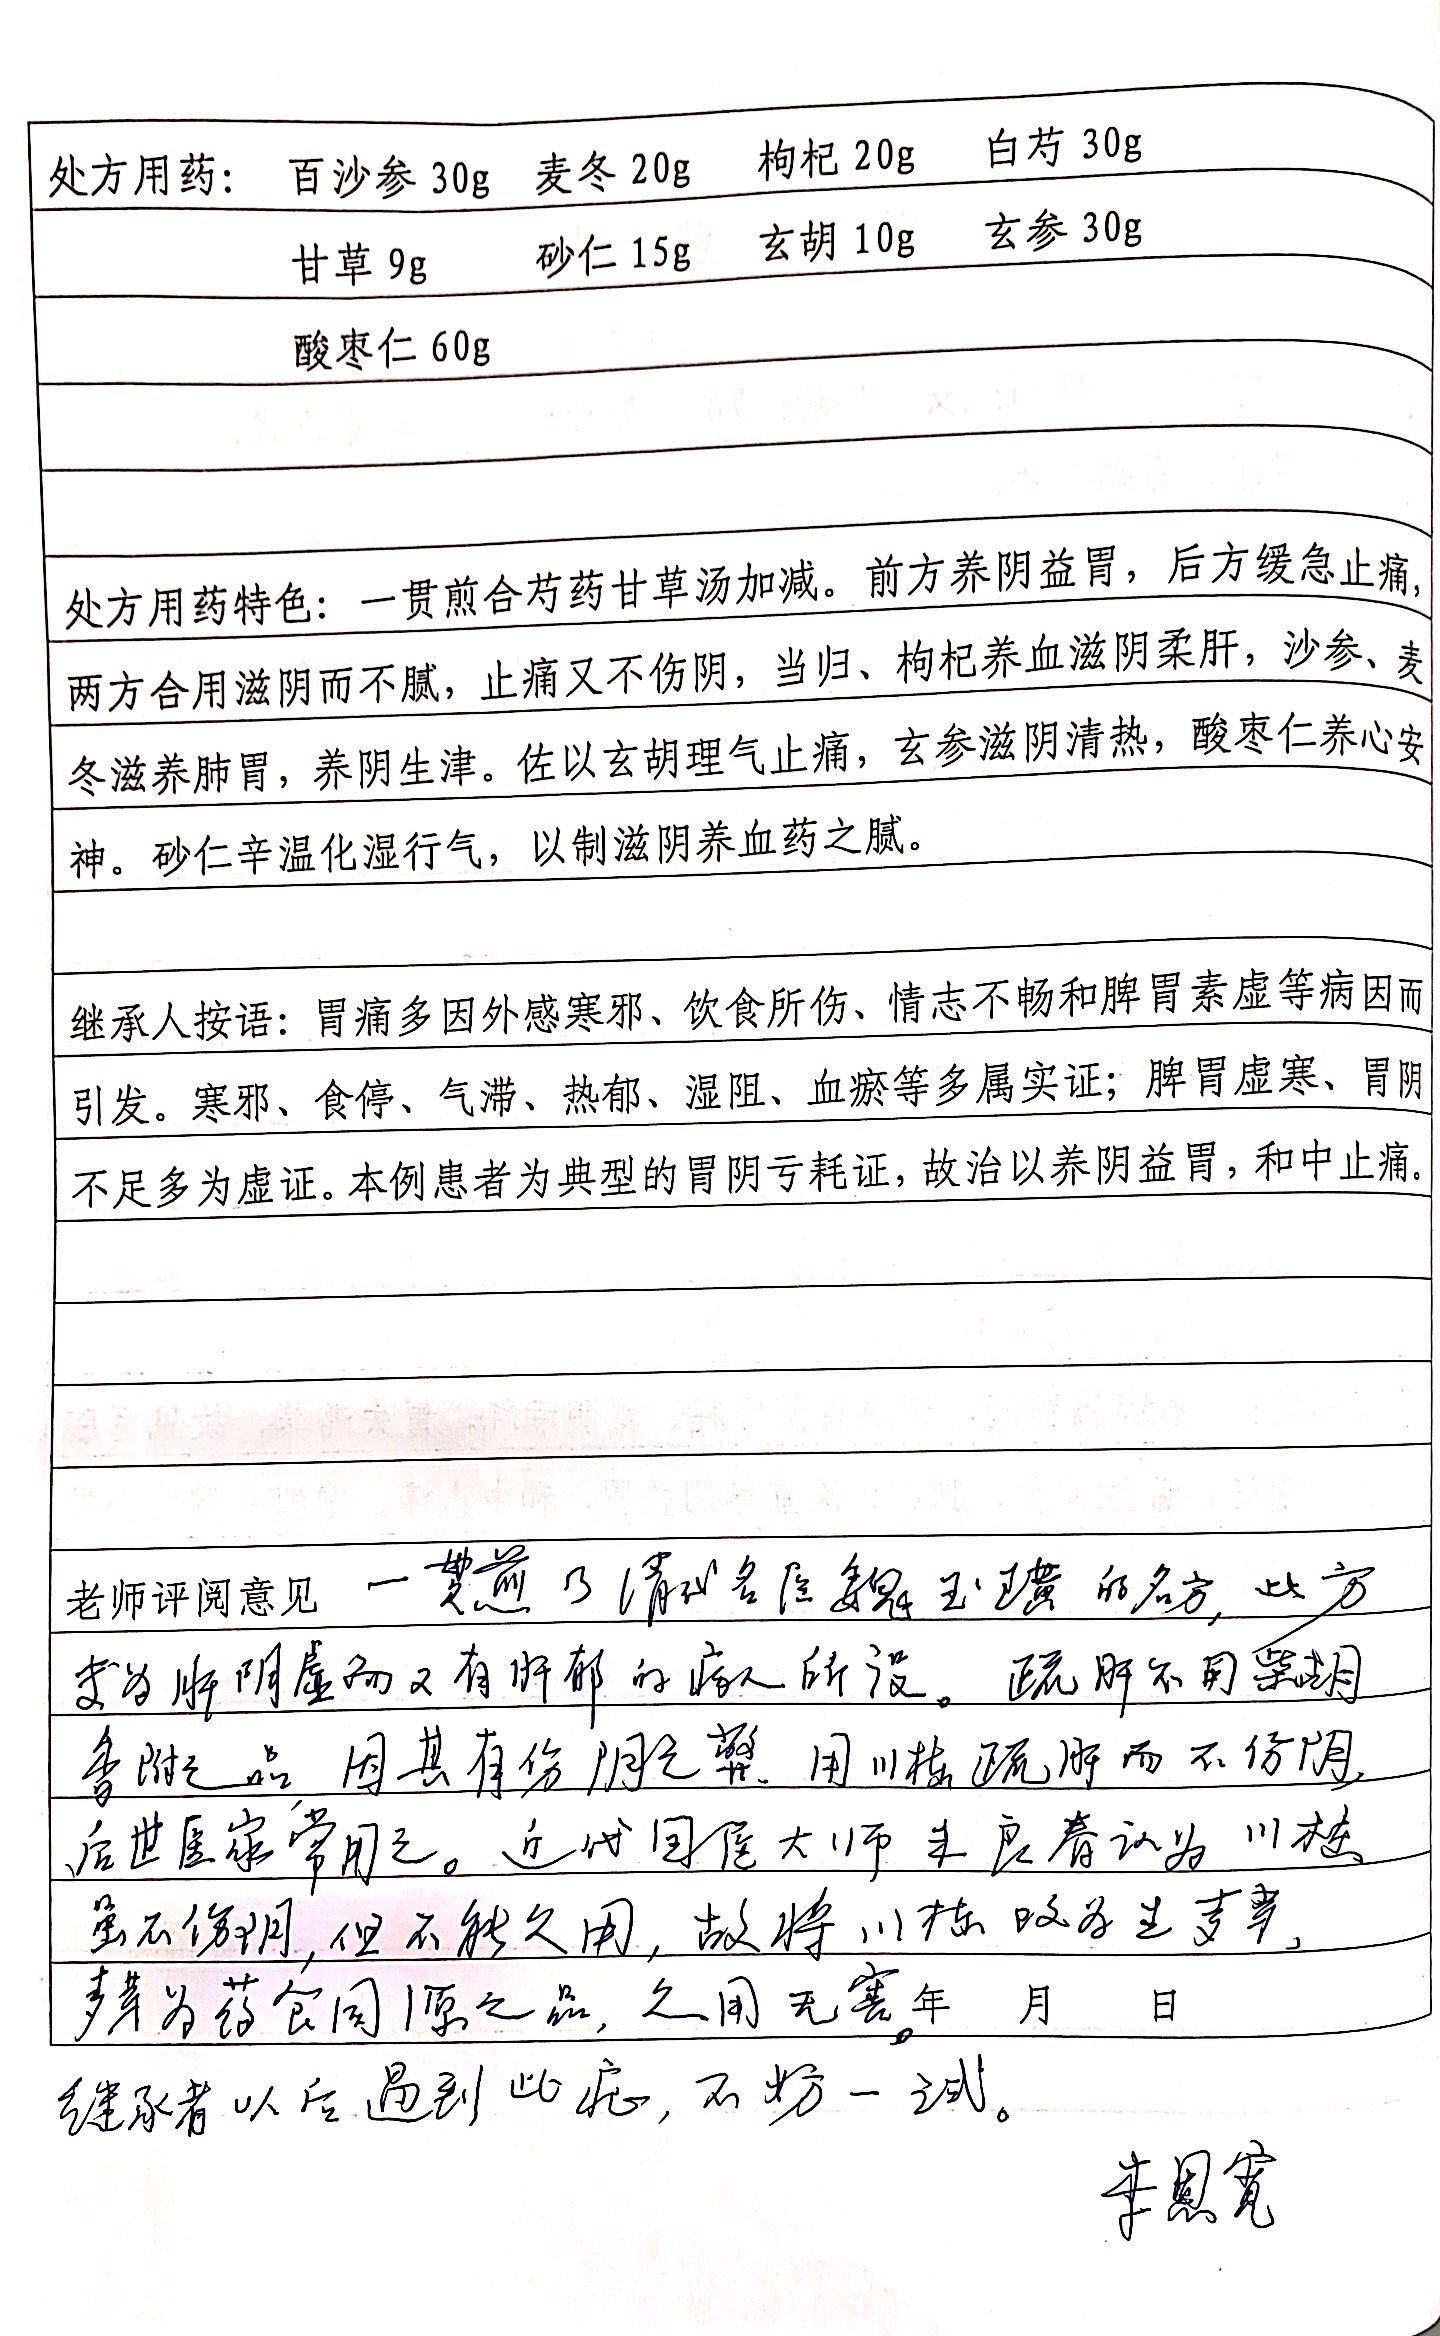 处方用药： 百沙参 30g 麦冬 20g 枸杞 20g 白芍 30g
甘草 9g 砂仁 15g 玄胡 10g 玄参 30g
酸枣仁 60g
处方用药特色：一贯煎合芍药甘草汤加减。前方养阴益胃，后方缓急止痛，
两方合用滋阴而不腻，止痛又不伤阴，当归、枸杞养血滋阴柔肝，沙参、麦
冬滋养肺胃，养阴生津。佐以玄胡理气止痛，玄参滋阴清热，酸枣仁养心安
神。砂仁辛温化湿行气，以制滋阴养血药之腻。
继承人按语：胃痛多因外感寒邪、饮食所伤、情志不畅和脾胃素虚等病因而
引发。寒邪、食停、气滞、热郁、湿阻、血瘀等多属实证；脾胃虚寒、胃阴
不足多为虚证。本例患者为典型的胃阴亏耗证，故治以养阴益胃，和中止痛.
老师评阅意见 一贯煎乃清代名医魏玉璜的名方，此方
为肝阴虚而又有肝郁的病人所设。疏肝不用柴胡
香附之品，因其有伤阴之弊。用川楝疏肝而不伤阴，
后世医家常用之。近代国医大师朱良春认为川楝
虽不伤阴，但不能久用，故将川楝改为生麦芽，
麦芽为药食同源之品，久用无害。年 月 日
继承者以后遇到此症，不妨一试。
李恩宽